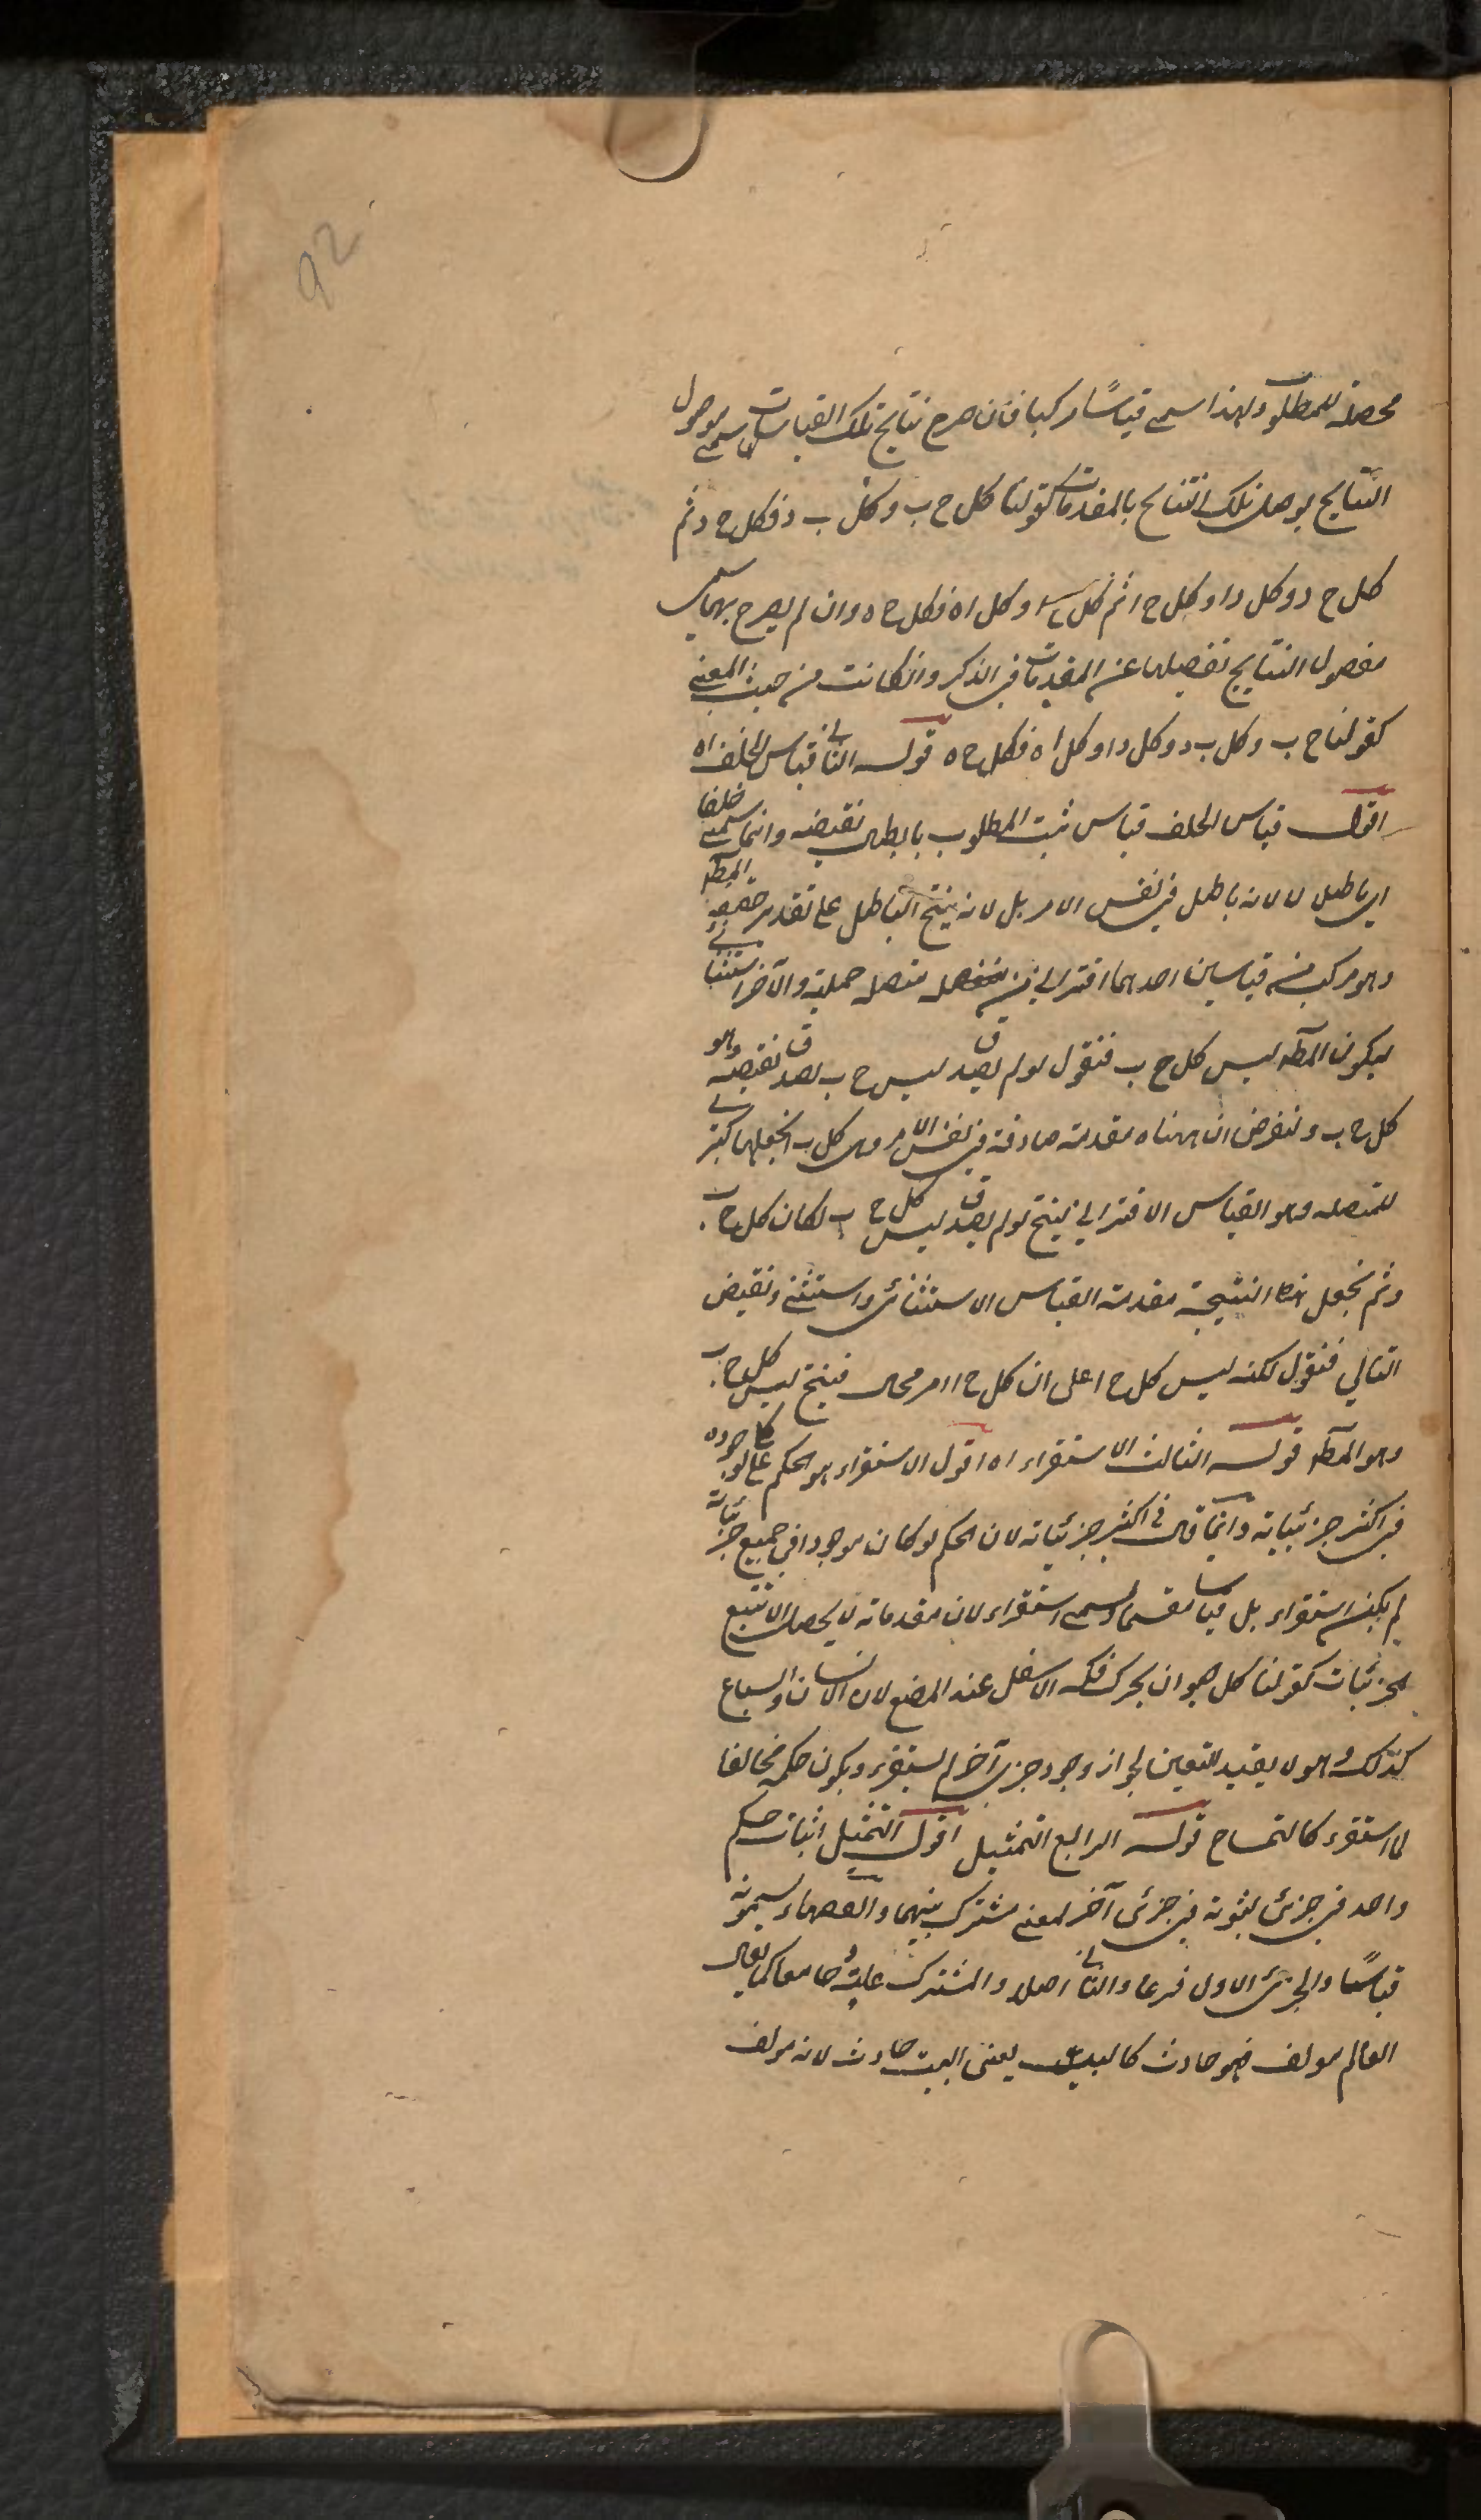 92
محصلة للمطلوب ولهذا سمي قياسًا مركبا فان صرح نتايج تلك القياسات سمي موصول
النتايج لوصل تلك النتايج بالمقدمات كقولنا كل ج ب وكل ب د فكل ج د ثم
كل ج د وكل د ا وكل ج ا ثم كل ج ا وكل ا ه فكل ج ه وان لم يصرح بها سمي
مفصول النتايج لفصلها عن المقدمات في الذكر وان كانت من حيث المعنى
كقولنا ج ب وكل ب د وكل د ا وكل ا ه فكل ج ه قوله الثاني قياس الخلف اه
اقول قياس الخلف قياس يثبت المطلوب بابطال نقيضه وانما سمي خلفا
اي باطل لا لانه باطل في نفس الامر بل لانه ينتج الباطل على تقدير حقية المط
وهو مركب من قياسين احدهما اقتراني من متصلة حملية والآخر استثنائي
ليكون المط ليس كل ج ب فنقول لو لم يصدق ليس ج ب لصدق نقيضه وهو
كل ج ب ولنفرض ان ههنا مقدمة صادقة في نفس الامر وهي كل ب ا نجعلها كبرى
للمتصلة وهو القياس الاقتراني ينتج لو لم يصدق ليس كل ج ب لكان كل ج ب
وثم نجعل هذا النتيجة مقدمة القياس الاستثنائي واستثنى ونقيض
التالي فنقول لكنه ليس كل ج ا على ان كل ج ا امر محال فينتج ليس كل ج ب
وهو المط قوله الثالث الاستقراء اه اقول الاستقراء هو الحكم على كلي لوجوده
في اكثر جزئياته وانما قال في اكثر جزئياته لان الحكم لو كان موجودا في جميع جزئياته
لم يكن استقراء بل قياسا مقسما وسمي استقراء لان مقدماته لا يحصل الا بتتبع
الجزئيات كقولنا كل حيوان يحرك فكه الاسفل عند المضغ لان الانسان والسباع
كذلك وهو لا يفيد اليقين لجواز وجود جزئي آخر لم يستقرء ويكون حكمه مخالفا
لما استقرء كالتمساح قوله الرابع التمثيل اقول التمثيل اثبات حكم
واحد في جزئي لثبوته في جزئي آخر لمعنى مشترك بينهما والفقهاء يسمونه
قياسًا والجزئي الاول فرعا والثاني اصلا والمشترك علةً وجامعا كما يقال
العالم مولف فهو حادث كالبيت يعنى البيت حادث لانه مولف